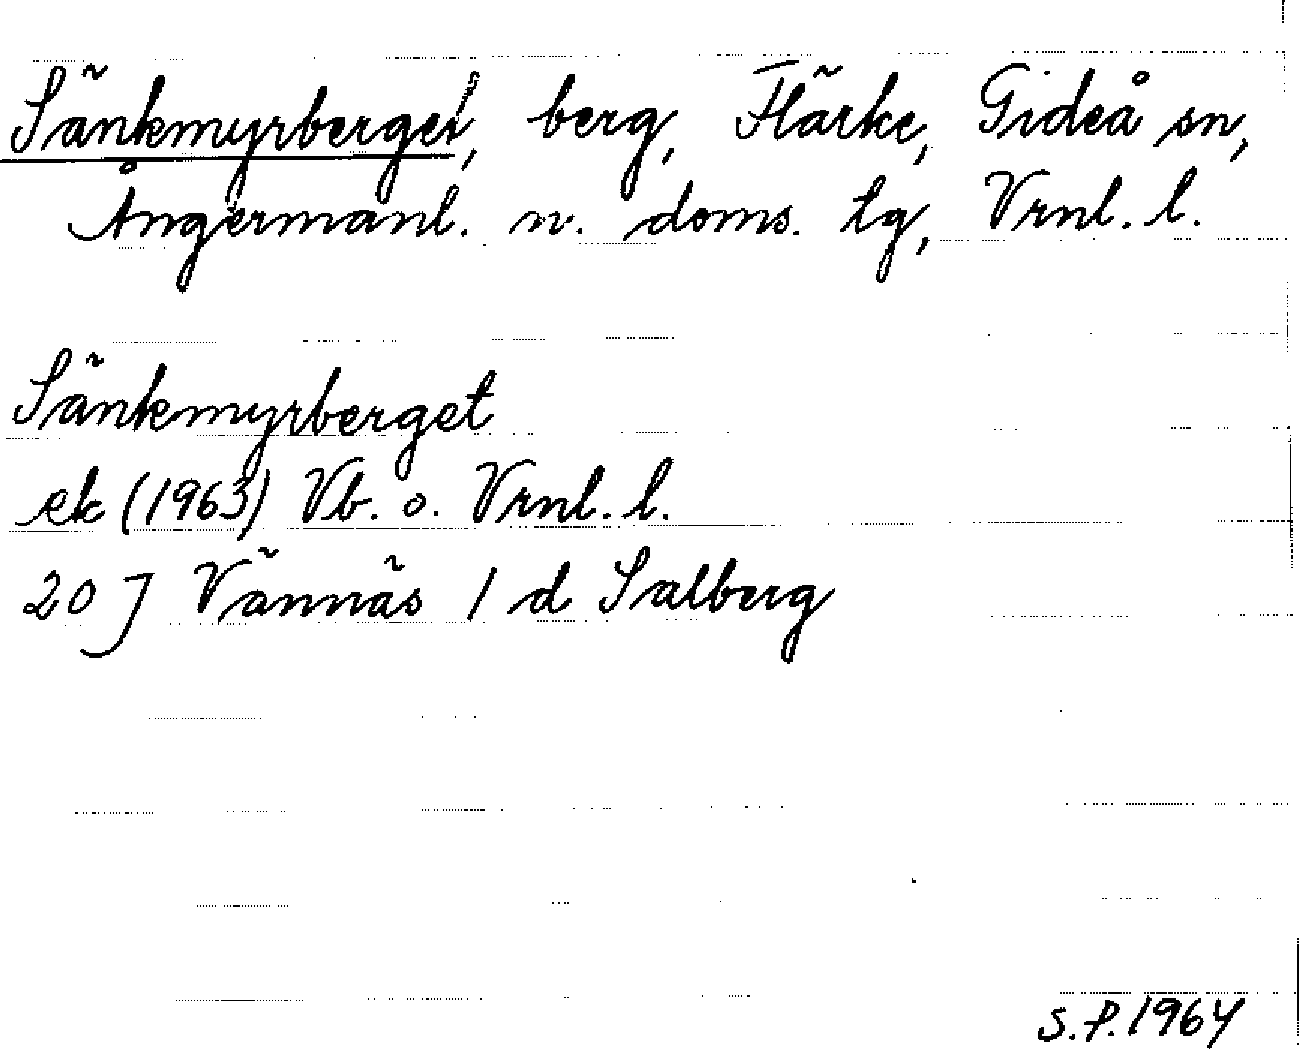 Sänkmyrberget, berg, Flärke, Gideå sn,
Ångermanl. n. doms. tg, Vrnl. l.
Sänkmyrberget
ek (1963) Vb. o. Vrnl. l.
20 J Vännäs 1 d Salberg
S.P. 1964